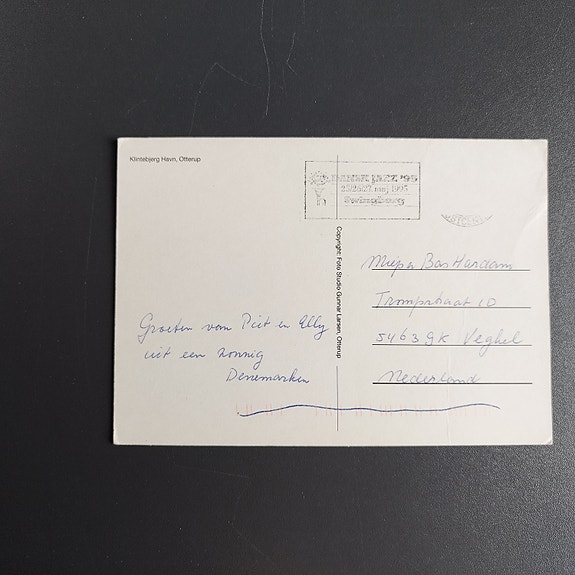 Klintebjerg Havn, Otterup
JAZZ '95
25/26/27 maj 1995
Copyright: Foto Studio Gunnar Larsen, Otterup
Groeten van Piet en Elly
uit een zonnig
Denemarken
Bas Hardam
Trompstraat 10
5463 GK Veghel
Nederland